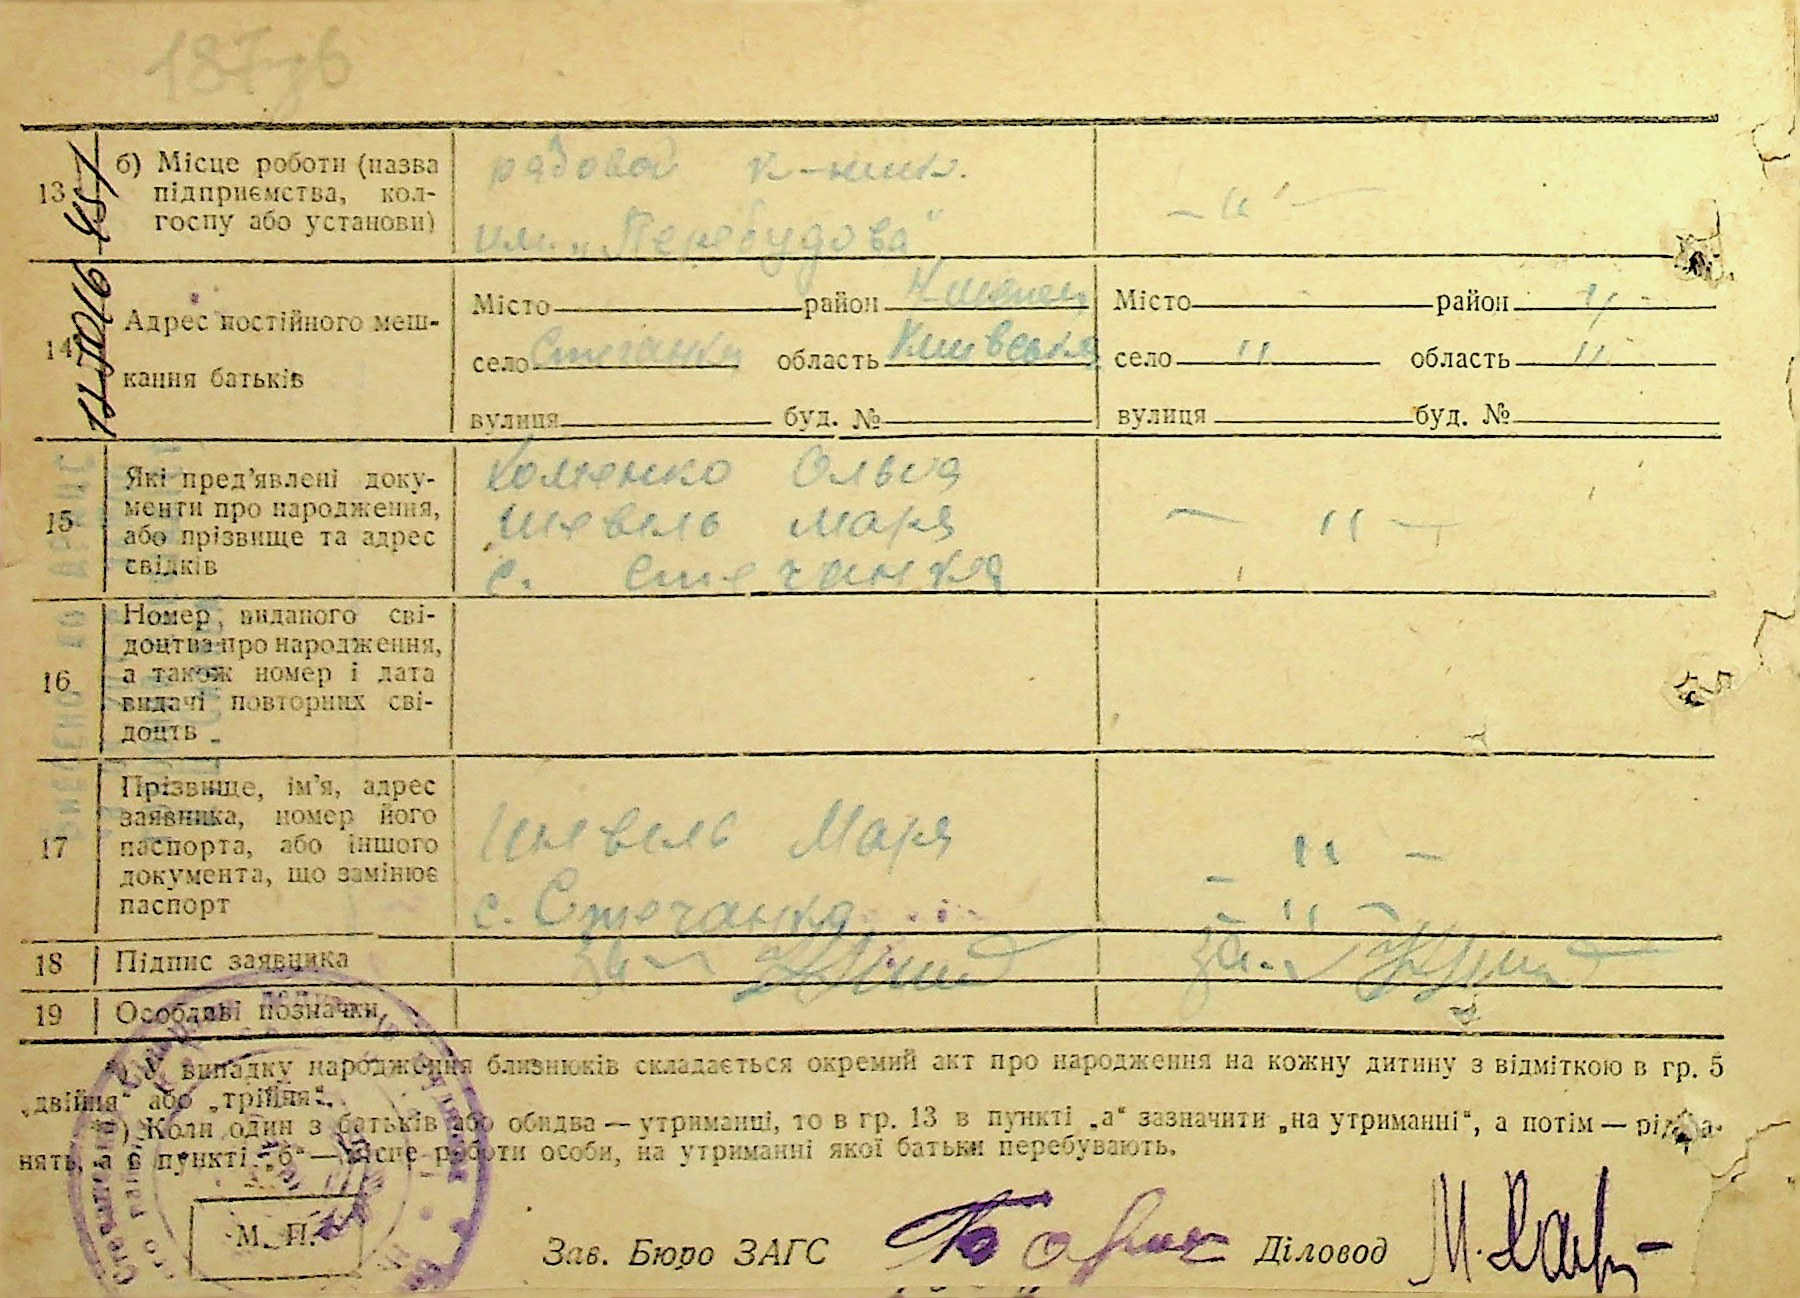 13 б) Місце роботи (назва підприємства, колгоспу або установи)
рядовой к-ник.
им. „Перебудова"
— " —
14 Адрес постійного мешкання батьків
Місто район
село Стечанки область Київська
вулиця буд. №
Місто район "
село " область "
вулиця буд. №
15 Які пред'явлені документи про народження, або прізвище та адрес свідків
Хоменко Ольга
Шевель Марія
с. Стечанка
— " —
16 Номер виданого свідоцтва про народження, а також номер і дата видачі повторних свідоцтв
17 Прізвище, ім'я, адрес заявника, номер його паспорта, або іншого документа, що замінює паспорт
Шевель Марія
с. Стечанка
— " —
— " —
18 Підпис заявника
за
за
19 Особливі позначки
*) У випадку народження близнюків складається окремий акт про народження на кожну дитину з відміткою в гр. 5
„двійня" або „трійня".
) Коли один з батьків або обидва — утриманці, то в гр. 13 в пункті „а" зазначити „на утриманні", а потім —
нять, а в пункті „б" — місце роботи особи, на утриманні якої батьки перебувають.
М. П.
Зав. Бюро ЗАГС
Діловод